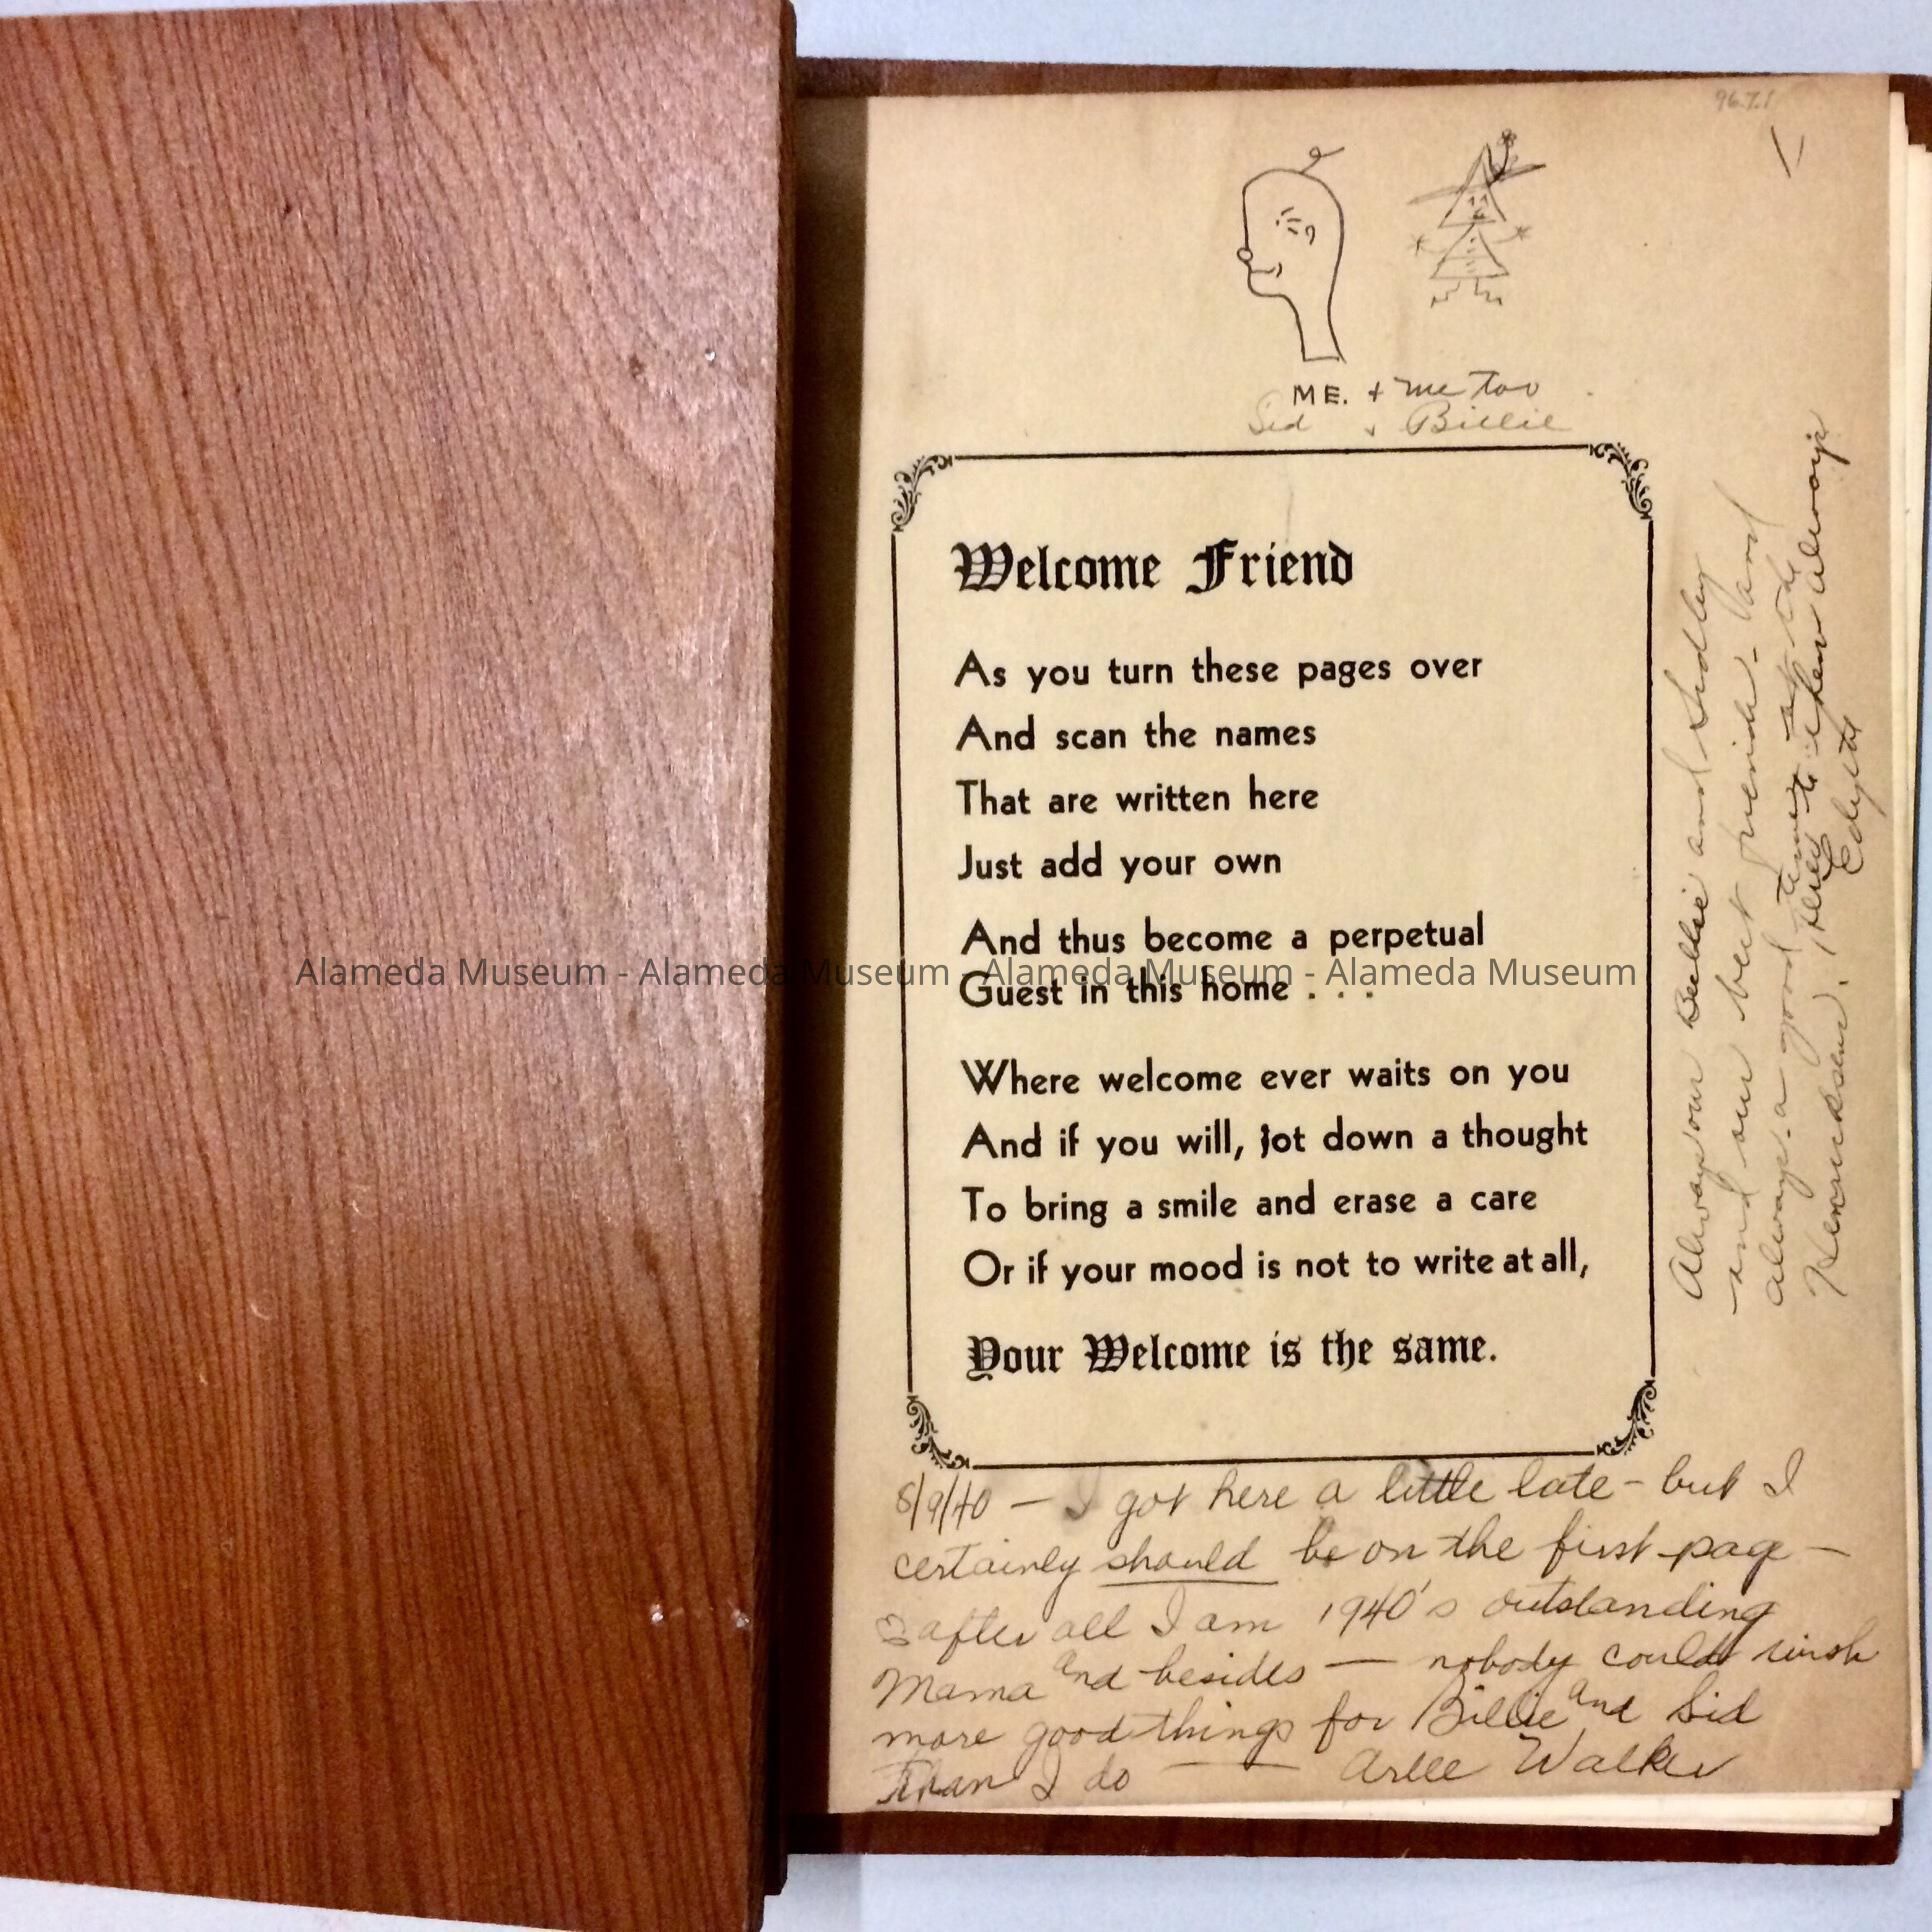 96.7.1
ME. + me too
Sid + Billie
Welcome Friend
As you turn these pages over
And scan the names
That are written here
Just add your own
And thus become a perpetual
Guest in this home . . .
Where welcome ever waits on you
And if you will, jot down a thought
To bring a smile and erase a care
Or if your mood is not to write at all,
Your Welcome is the same.
Always our Billie and Sidley
and our best friends - and
always - a good time at the
Henricksen. Here's to them always
Edythe
8/9/40 — I got here a little late - but I
certainly should be on the first page —
after all I am 1940's outstanding
Mama and besides — nobody could wish
more good things for Billie and Sid
Than I do — — Arlee Walker
Alameda Museum - Alameda Museum - Alameda Museum - Alameda Museum